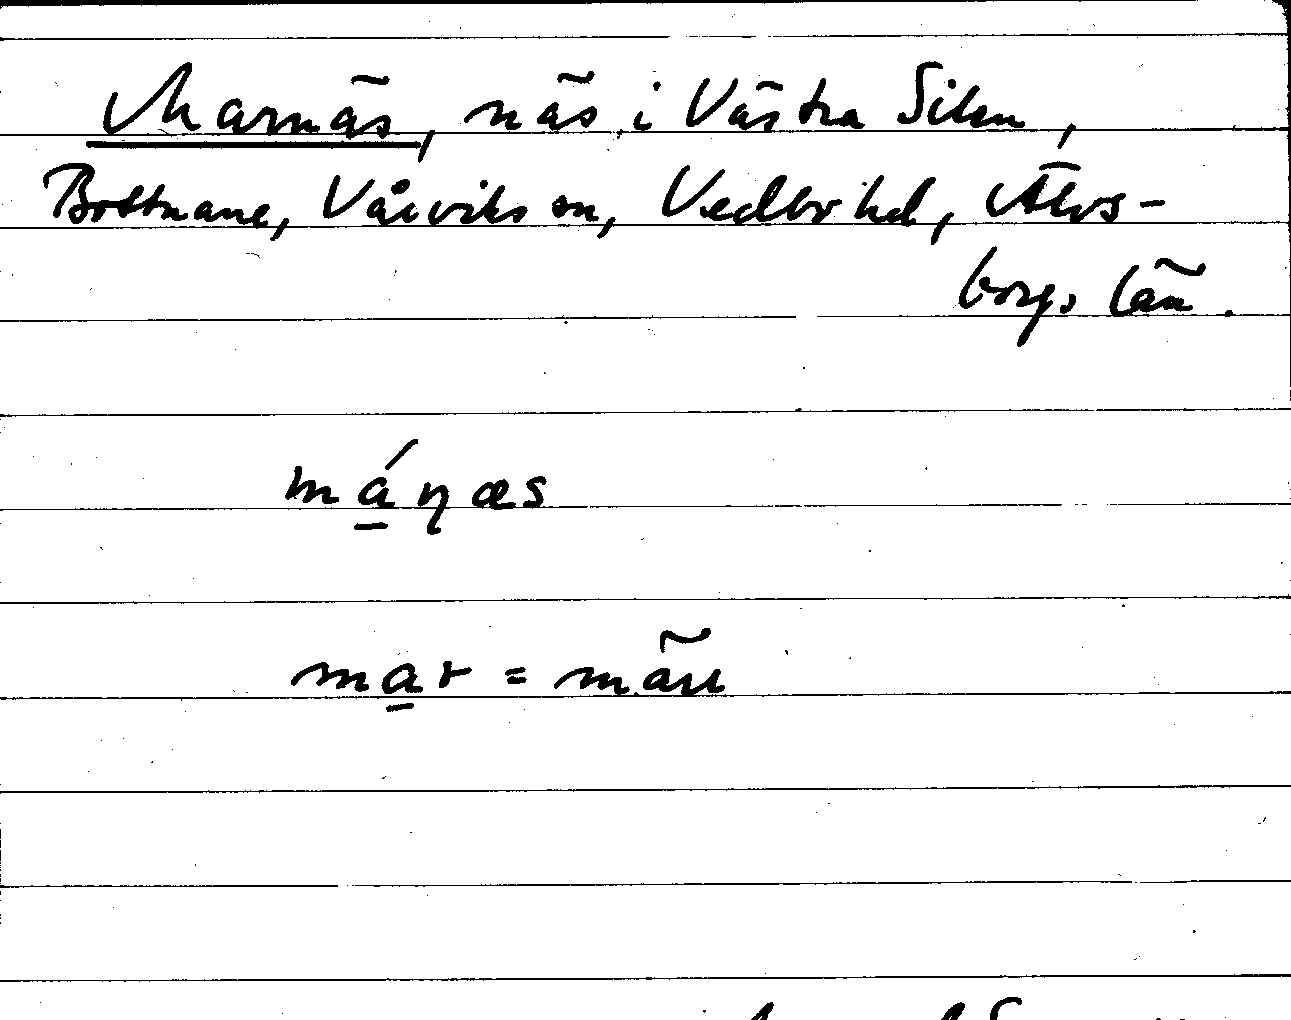 Marnäs, näs i Västra Silen,
Bottnane, Vårviks sn, Vedbo hd, Älvs-
borgs län.
má̱ŋæs
ma̱r = märr